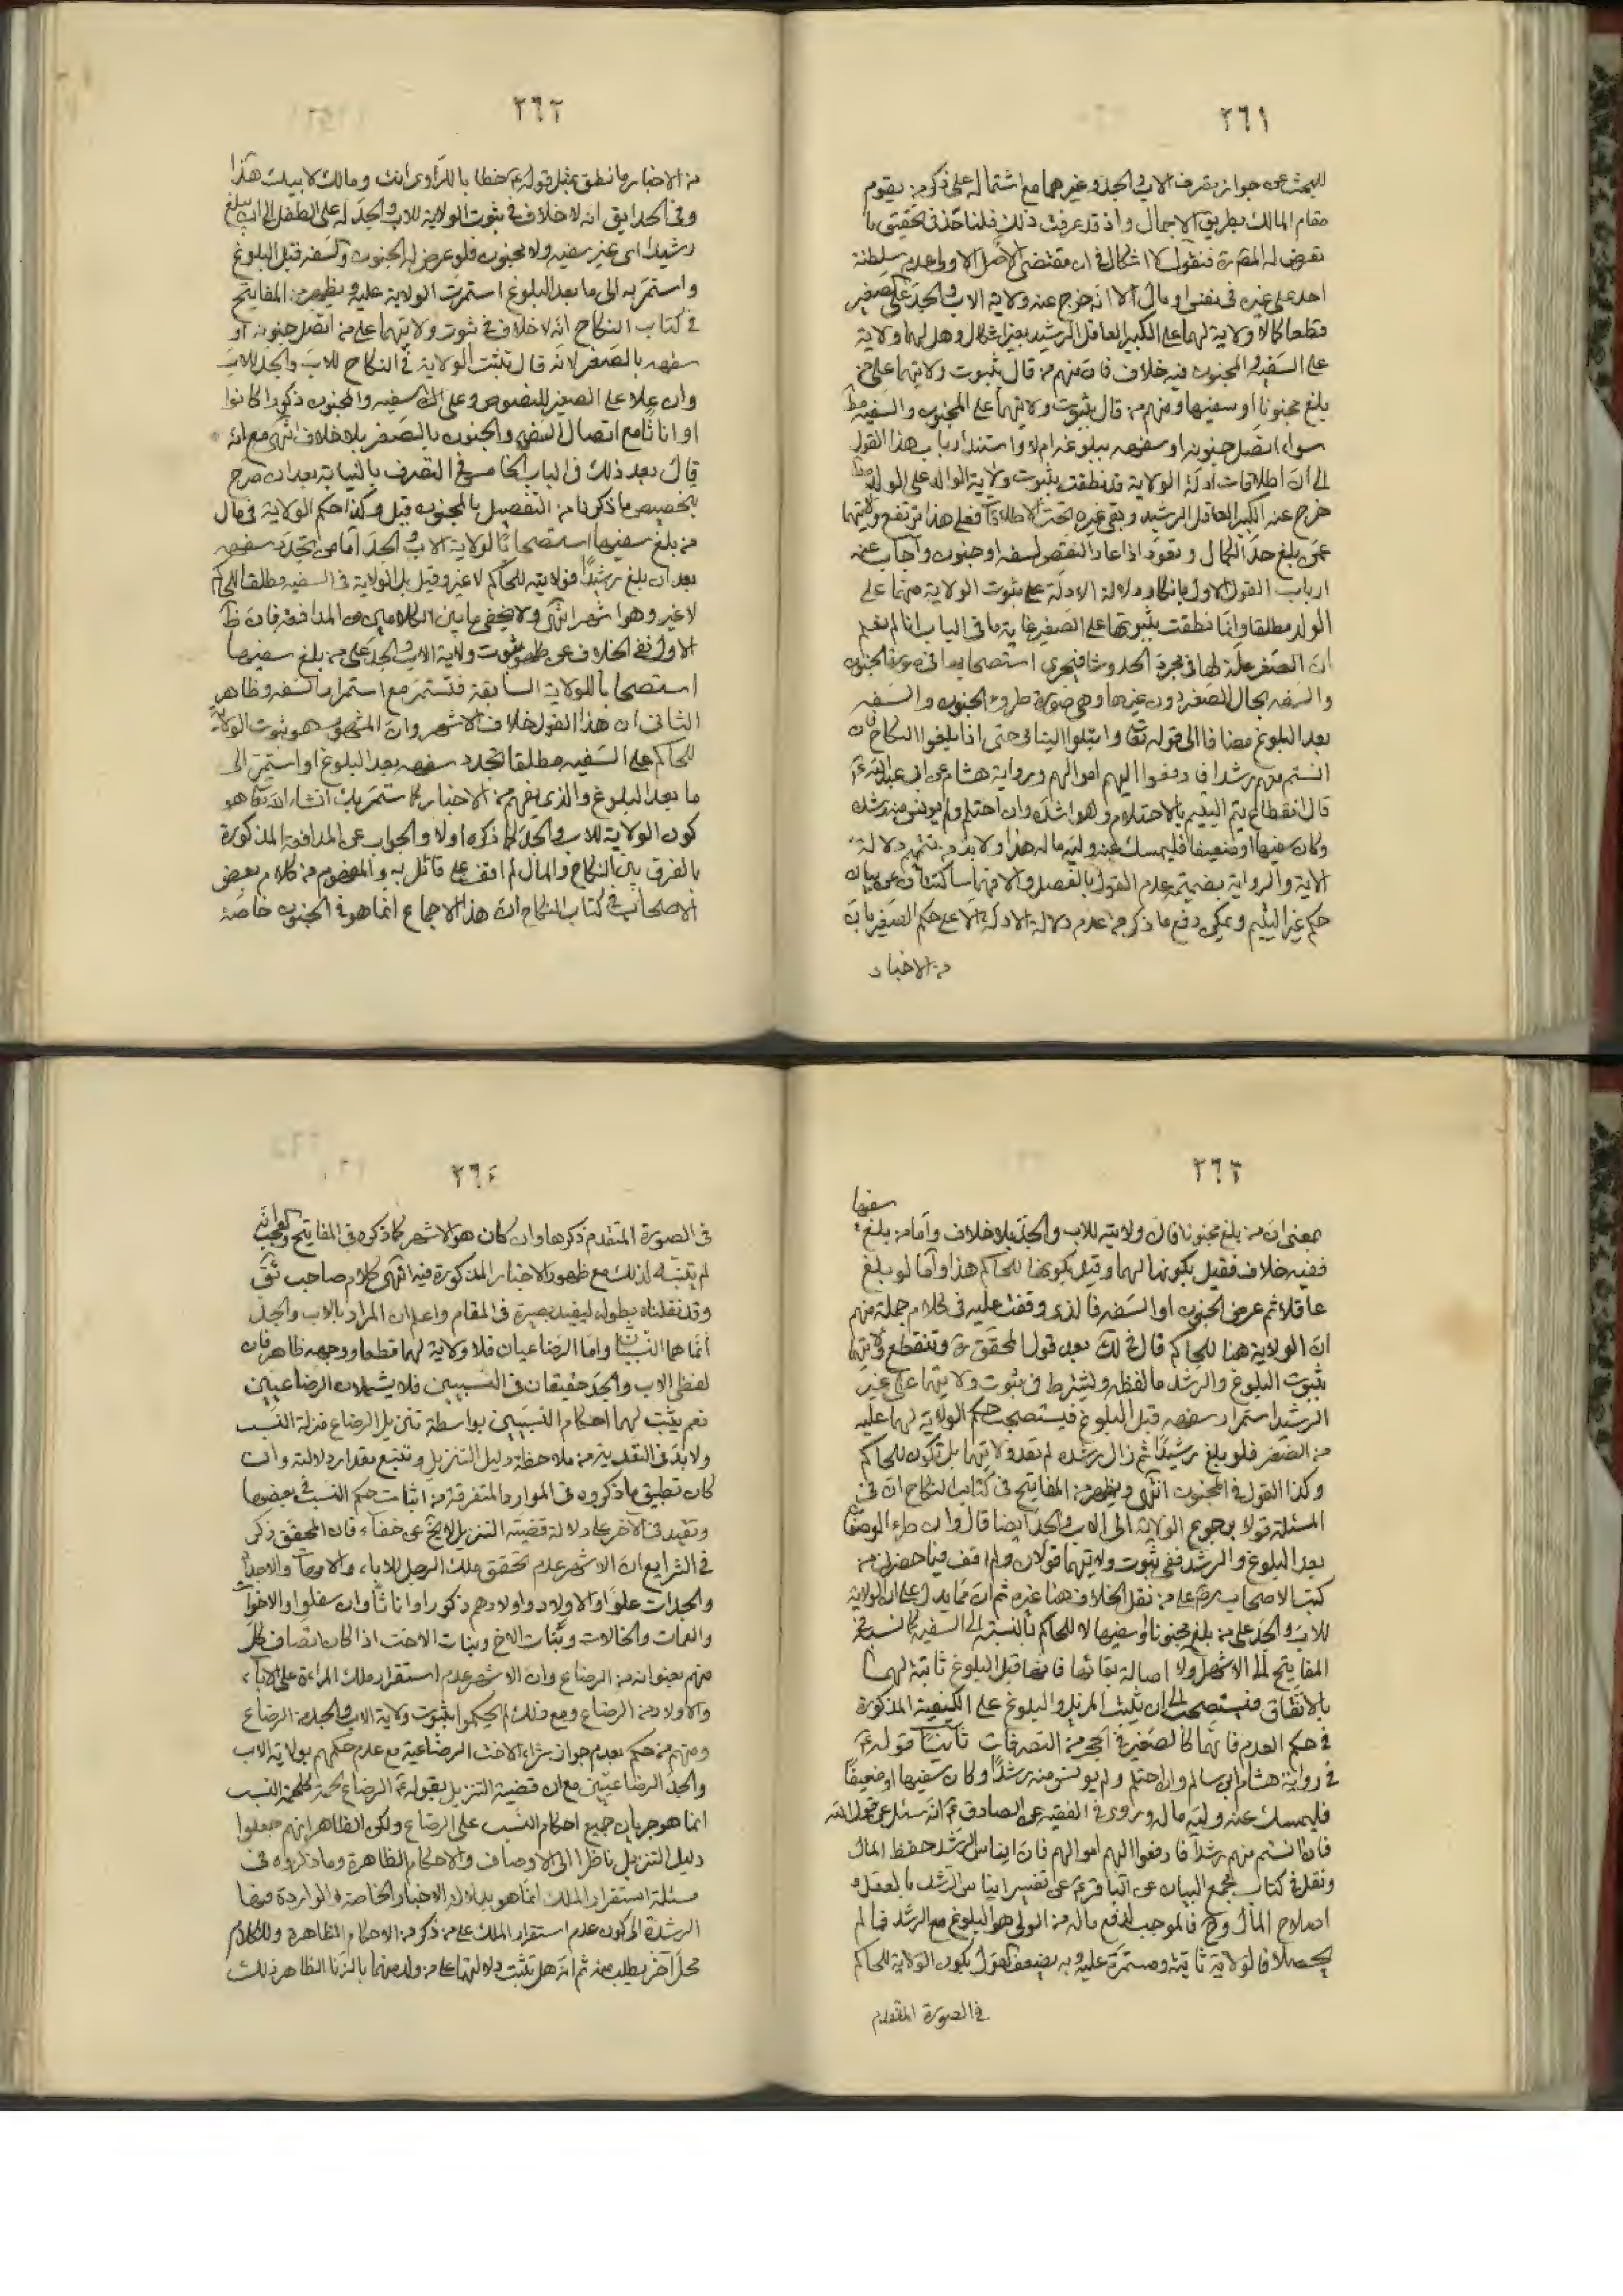 ٢٦١
للبحث عن جواز تصرف الاب والجد وغيرهما مع اشتماله على ذكر من يقوم
مقام المالك بطريق الاجمال واذ قد عرفت ذلك فلنأخذ في تحقيق ما
تعرض له المصنف ره فنقول لا اشكال في ان مقتضى الاصل الاولى عدم سلطنة
احد على غيره في نفس او مال الا انه خرج عنه ولاية الاب والجد على الصغير
قطعا كما لا ولاية لهما على الكبير العاقل الرشيد بغير اشكال وهل لهما ولاية
على السفيه والمجنون فيه خلاف فان منهم من قال بثبوت ولايتهما على من
بلغ مجنونا او سفيها ومنهم من قال بثبوت ولايتهما على المجنون والسفيه مط
سواء اتصل جنونه او سفهه ببلوغه ام لا واستند ارباب هذا القول
الى ان اطلاقات ادلة الولاية قد نطقت بثبوت ولاية الوالد على الولد مط
خرج عنه الكبير العاقل الرشيد وبقي غيره تحت الاطلاقات فعلى هذا ترتفع ولايتهما
عمن بلغ حد الكمال وتعود اذا عاد النقص لسفه او جنون واجاب عنه
ارباب القول الاول بانكار دلالة الادلة على ثبوت الولاية منهما على
الولد مطلقا وانما نطقت بثبوتها على الصغير غاية ما في الباب انا لم نعلم
ان الصغر علة لها في مجرد الحدوث فيجرى استصحابها في صورة الجنون
والسفه بحال الصغر دون غيرها وهي صورة طروء الجنون والسفه
بعد البلوغ مضافا الى قوله تعالى وابتلوا اليتامى حتى اذا بلغوا النكاح فان
انستم منهم رشدا فادفعوا اليهم اموالهم ورواية هشام عن ابي عبد الله ع
قال انقطاع يتم اليتيم بالاحتلام وهو اشده وان احتلم ولم يونس منه رشده
وكان سفيها او ضعيفا فليمسك عنه وليه ماله هذا ولا بد من تتميم دلالة
الاية والرواية بضميمة عدم القول بالفصل والا فهما ساكتتان عن بيان
حكم غير اليتيم ويمكن دفع ما ذكر من عدم دلالة الادلة الا على حكم الصغير بان
من الاخبار
٢٦٢
من الاخبار ما نطق بمثل قوله ع خطابا للراوى انت ومالك لابيك هذا
وفي الحدايق انه لا خلاف في ثبوت الولاية للاب والجد له على الطفل الى ان يبلغ
رشيدا اي غير سفيه ولا مجنون فلو عرض له الجنون والسفه قبل البلوغ
واستمر به الى ما بعد البلوغ استمرت الولاية عليه ويظهر من المفاتيح
في كتاب النكاح انه لا خلاف في ثبوت ولايتهما على من اتصل جنونه او
سفهه بالصغر لانه قال تثبت الولاية في النكاح للاب والجد للاب
وان علا على الصغير للنصوص وعلى السفيه والمجنون ذكورا كانوا
او اناثا مع اتصال السفه والجنون بالصغر بلا خلاف انتهى مع انه
قال بعد ذلك في الباب الخامس في التصرف بالنيابة بعد ان صرح
بتخصيص ما ذكرنا من التفصيل بالمجنون قيل وكذا حكم الولاية في مال
من بلغ سفيها استصحابا لولاية الاب والجد اما من تجدد سفهه
بعد ان بلغ رشيدا فولايته للحاكم لا غير وقيل بل الولاية في السفيه مطلقا للحاكم
لا غير وهو اشهر انتهى ولا يخفى ما بين الكلامين من المدافعة فان ظ
الاول نفي الخلاف عن ثبوت ولاية الاب والجد على من بلغ سفيها
استصحابا للولاية السابقة فتستمر مع استمرار السفه وظاهر
الثاني ان هذا القول خلاف الاشهر وان المشهور هو ثبوت الولاية
للحاكم على السفيه مطلقا تجدد سفهه بعد البلوغ او استمر الى
ما بعد البلوغ والذي يفهم من الاخبار كما ستمر بك انشاء الله تعالى هو
كون الولاية للاب والجد كما ذكره اولا والجواب عن المدافعة المذكورة
بالفرق بين النكاح والمال لم اقف على قائل به والمفهوم من كلام بعض
الاصحاب في كتاب النكاح ان هذا الاجماع انما هو في الجنون خاصة
٢٦٣
سفيها
بمعنى ان من بلغ مجنونا فان ولايته للاب والجد بلا خلاف واما من بلغ
ففيه خلاف فقيل بكونها لهما وقيل بكونها للحاكم هذا واما لو بلغ
عاقلا ثم عرض الجنون او السفه فالذي وقفت عليه في كلام جملة منهم
ان الولاية هنا للحاكم قال في لك بعد قول المحقق ره وتنقطع ولايتهما
بثبوت البلوغ والرشد ما لفظه ويشترط في ثبوت ولايتهما على غير
الرشيد استمرار سفهه قبل البلوغ فيستصحب حكم الولاية لهما عليه
من الصغر فلو بلغ رشيدا ثم زال رشده لم تعد ولايتهما بل تكون للحاكم
وكذا القول في المجنون انتهى ويظهر من المفاتيح في كتاب النكاح ان في
المسئلة قولا برجوع الولاية الى الاب والجد ايضا قال وان طرء الوصفان
بعد البلوغ والرشد ففي ثبوت ولايتهما قولان ولم اقف فيما حضرني من
كتب الاصحاب رض على من نقل الخلاف هنا غيره ثم ان مما يدل على ان الولاية
للاب والجد على من بلغ مجنونا او سفيها لا للحاكم بالنسبة الى السفيه كما نسبه في
المفاتيح الى الاشهر اولا اصالة بقائها فانها قبل البلوغ ثابتة لهما
بالاتفاق فيستصحب الى ان يثبت المزيل والبلوغ على الكيفية المذكورة
في حكم العدم فانهما كالصغير في الحجر من التصرفات ثانيا قوله ع
في رواية هشام بن سالم وان احتلم ولم يونس منه رشدا وكان سفيها او ضعيفا
فليمسك عنه وليه ماله وروى في الفقيه عن الصادق ع انه سئل عن قول الله
فان انستم منهم رشدا فادفعوا اليهم اموالهم قال ايناس الرشد حفظ المال
ونقل في كتاب مجمع البيان عن الباقر ع عن تفسير ايناس الرشد بالعقل و
اصلاح المال وح فالموجب لدفع ماله من الولى هو البلوغ مع الرشد فما لم
يحصلا فالولاية ثابتة ومستمرة عليه وبه يضعف القول بكون الولاية للحاكم
في الصورة المتقدم
٢٦٤
في الصورة المتقدم ذكرها وان كان هو الاشهر كما ذكره في المفاتيح والعجب انه
لم يتنبه لذلك مع ظهور الاخبار المذكورة فيه انتهى كلام صاحب ئق
وقد نقلناه بطوله ليفيد بصيرة في المقام واعلم ان المراد بالاب والجد
انما هما النسبيان واما الرضاعيان فلا ولاية لهما قطعا ووجهه ظاهر فان
لفظي الاب والجد حقيقتان في النسبيين فلا يشملان الرضاعيين
نعم يثبت لهما احكام النسبيين بواسطة تنزيل الرضاع منزلة النسب
ولا بد في التعدية من ملاحظة دليل التنزيل وتتبع مقدار دلالته وان
كان تطبيق ما ذكروه في الموارد المتفرقة من اثبات حكم النسب في بعضها
ونفيه في الاخر على دلالة قضية التنزيل لا يخ عن خفاء فان المحقق ذكر
في الشرايع ان الاشهر عدم تحقق ملك الرجل للاباء والامهات والاجداد
والجدات علوا والاولاد واولادهم ذكورا واناثا وان سفلوا والاخوات
والعمات والخالات وبنات الاخ وبنات الاخت اذا كان اتصاف كل
منهم بعنوانه من الرضاع وان الاشهر عدم استقرار ملك المراءة على الاباء
والاولاد من الرضاع ومع ذلك لم يحكموا بثبوت ولاية الاب والجد من الرضاع
ومنهم من حكم بعدم جواز شراء الاخت الرضاعية مع عدم حكمهم بولاية الاب
والجد الرضاعيين مع ان قضية التنزيل بقوله ع الرضاع لحمة كلحمة النسب
انما هو جريان جميع احكام النسب على الرضاع ولكن الظاهر انهم جعلوا
دليل التنزيل ناظرا الى الاوصاف والاحكام الظاهرة وما ذكروه في
مسئلة استقرار الملك انما هو بدلالة الاخبار الخاصة الواردة فيها
المرشدة الى كون عدم استقرار الملك على من ذكر من الاحكام الظاهرة وللكلام
محل آخر يطلب منه ثم انه هل تثبت ولايتهما على من ولد منهما بالزنا الظاهر ذلك